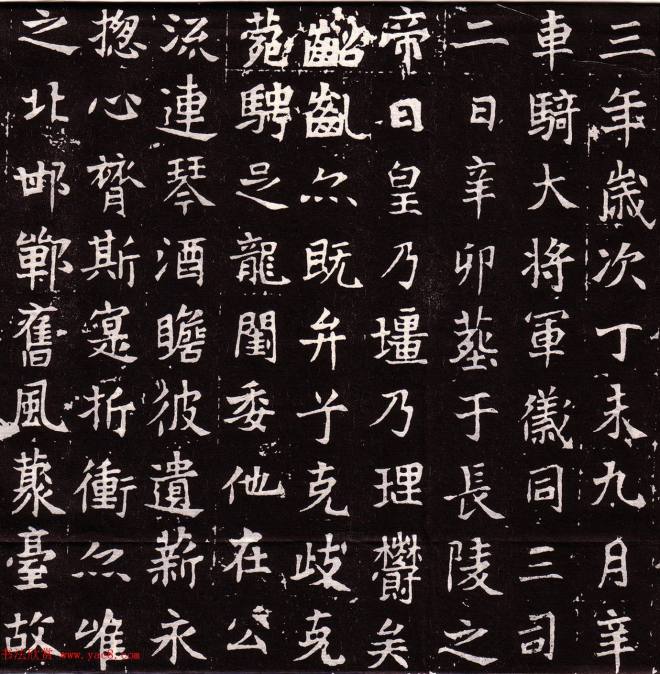 三年歲次丁未九月辛
車騎大将軍儀同三司
二日辛卯塟于長陵之
帝曰皇乃壃乃理欝矣
齠齔尒既弁兮克歧克
菀騁足龍閨委他在公
流連琴酒瞻彼遺薪永
揔心膂斯寔折衝尒唯
之北邯鄲舊風藂臺故
书法欣赏 www.yac8.com